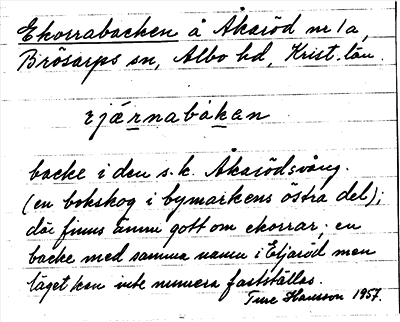 Ekorrabacken å Åkaröd nr 1a,
Brösarps sn, Albo hd, Krist. län.
rjæ̀rnabàkan
backe i den s.k. Åkarödsvång.
(en bokskog i bymarkens östra del);
där finns ännu gott om ekorrar; en
backe med samma namn i Etjaröd men
läget kan inte numera fastställas.
Ture Hansson 1957.